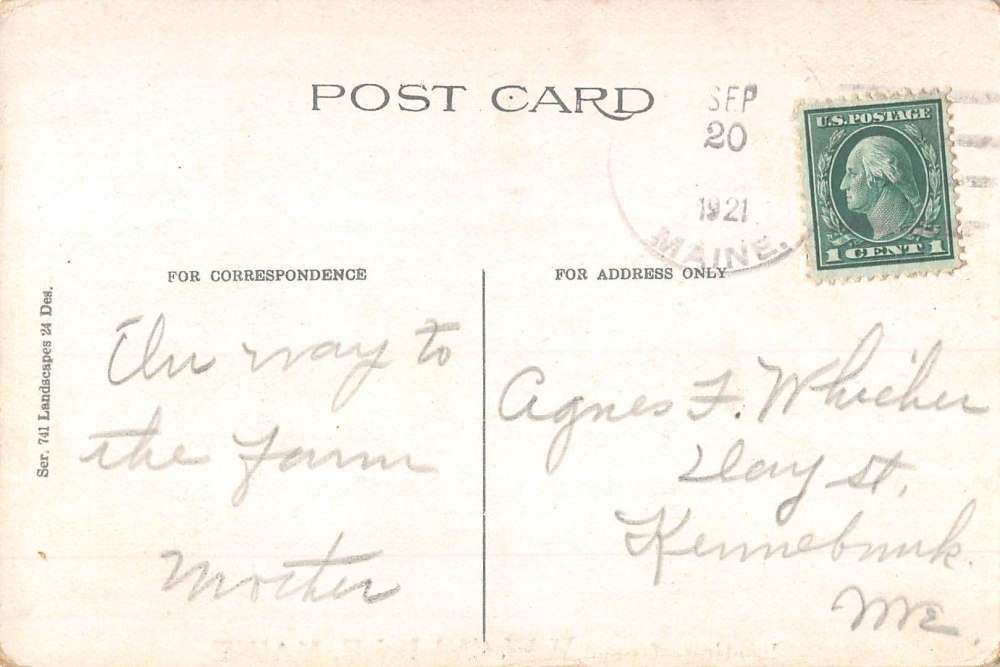 POST CARD
SEP
20
1921
MAINE.
U.S. POSTAGE
1 CENT 1
FOR CORRESPONDENCE
FOR ADDRESS ONLY
Ser. 741 Landscapes 24 Des.
On way to
the farm
Mother
Agnes F. Whicher
Day st.
Kennebunk
Me.